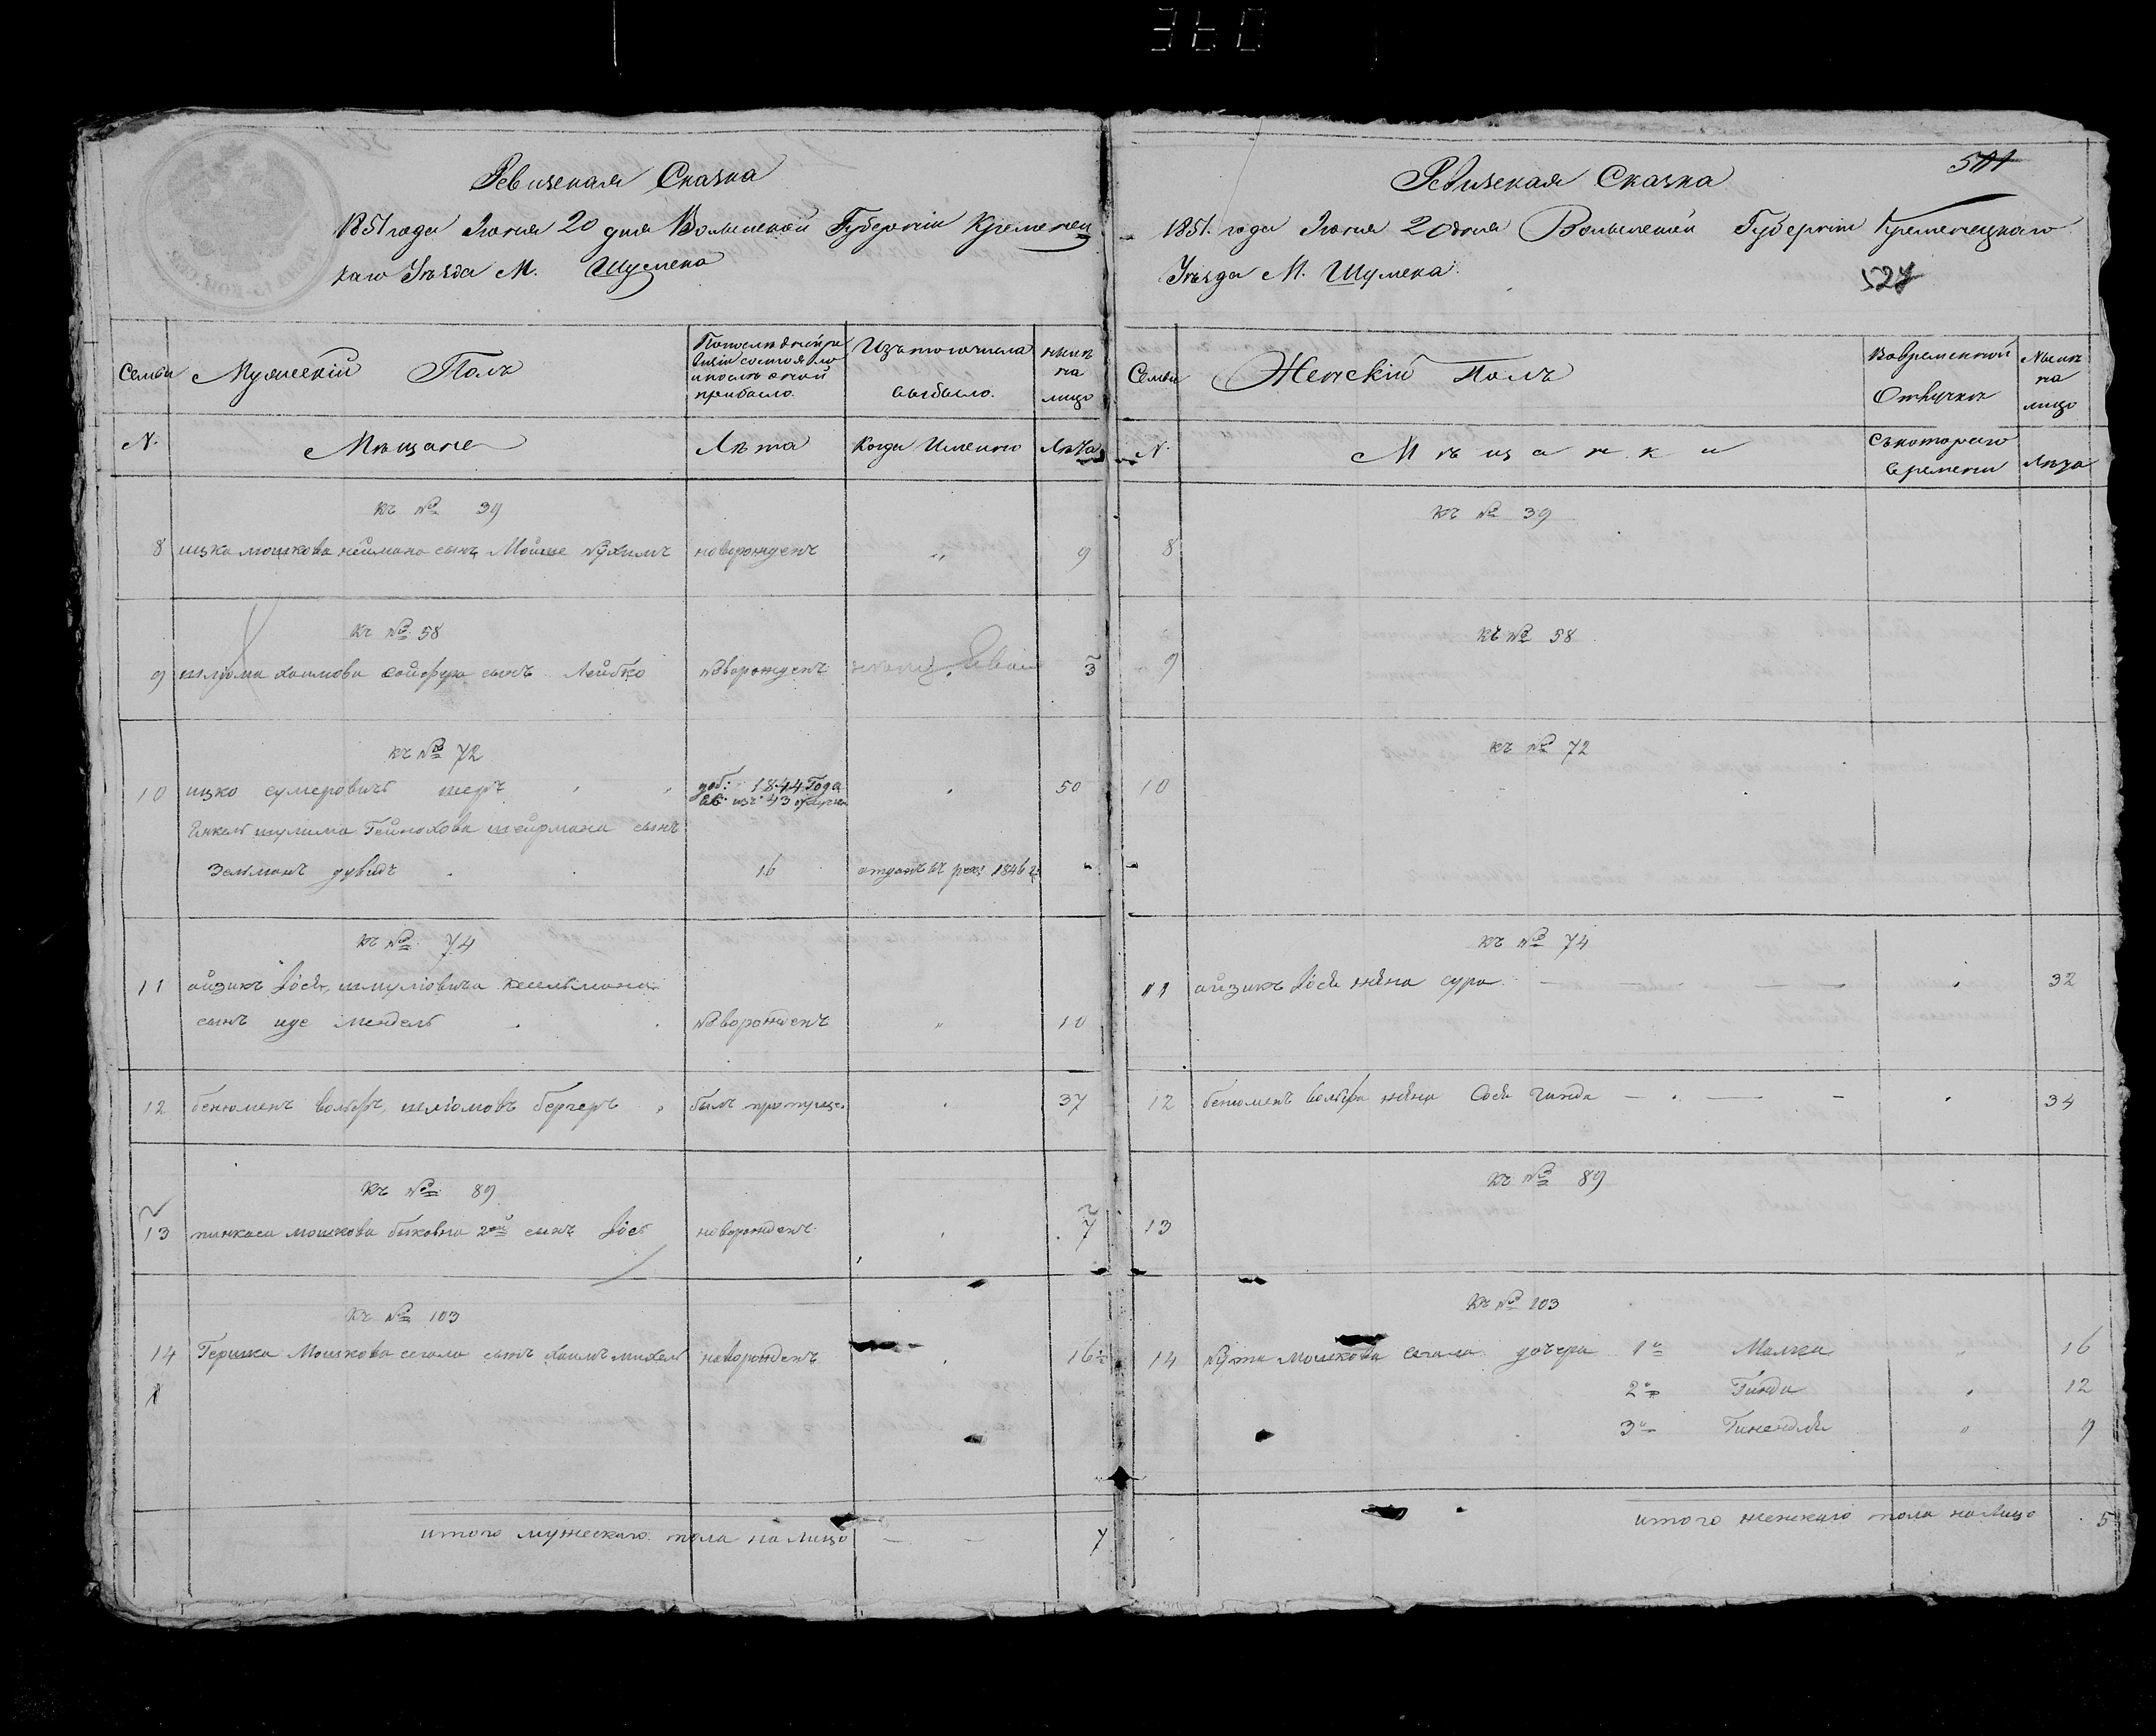 360
Ревизская Сказка
1851 года Іюня 20 дня Волынской Губерніи Кременец
каго Уѣзда М. Шумска
Семьи
Мужескій Полъ
По последней ре
визіи состояло
и после оной
прибыло.
Изъ того числа
выбыло.
ныне
на
лицо
№
Мѣщане
Лѣта
Когда Именно
Лѣта
къ № 39
8 ицка мошкова неймана сынъ Мойше новорожденъ „ 9
къ № 58
9 шліома хаимова сынъ Лейбко новорожденъ 3
къ № 72
10 ицко сумеровичъ шеръ доб: 1844 Года 50
шулима Гейнохова шейрмана сынъ
Зельманъ дувидъ 16 отданъ въ рек: 1846
къ № 74
11 айзикъ Іось шмуліовича
сынъ иде мендель новорожденъ „ 10
12 бенюменъ вольфъ шліомовъ бергеръ былъ 37
къ № 89
13 пинкаса мошкова быковна 2й сынъ Іось новорожденъ 7
къ № 103
14 Гершка Мошкова сегала сынъ хаимъ михель новорожденъ 16½
итого мужескаго пола на лицо 7
Ревизская Сказка
1851 года Іюня 20 дня Волынской Губерніи Кременецкаго
Уѣзда М. Шумска
527
Семьи
Женскій Полъ
Во временной
Отлучке
Ныне
на
лицо
№
Мѣщанки
Съ котораго
времени
Лѣта
къ № 39
8
къ № 58
9
къ № 72
10
къ № 74
11 айзикъ Іося жена сура 32
12 бенюменъ вольфа жена Сося гинда 34
къ № 89
13
къ № 103
14 мошкова сегала дочери 1я Малка „ 16
2я Гинда „ 12
3я Гинендля „ 9
итого женскаго пола на лицо 5